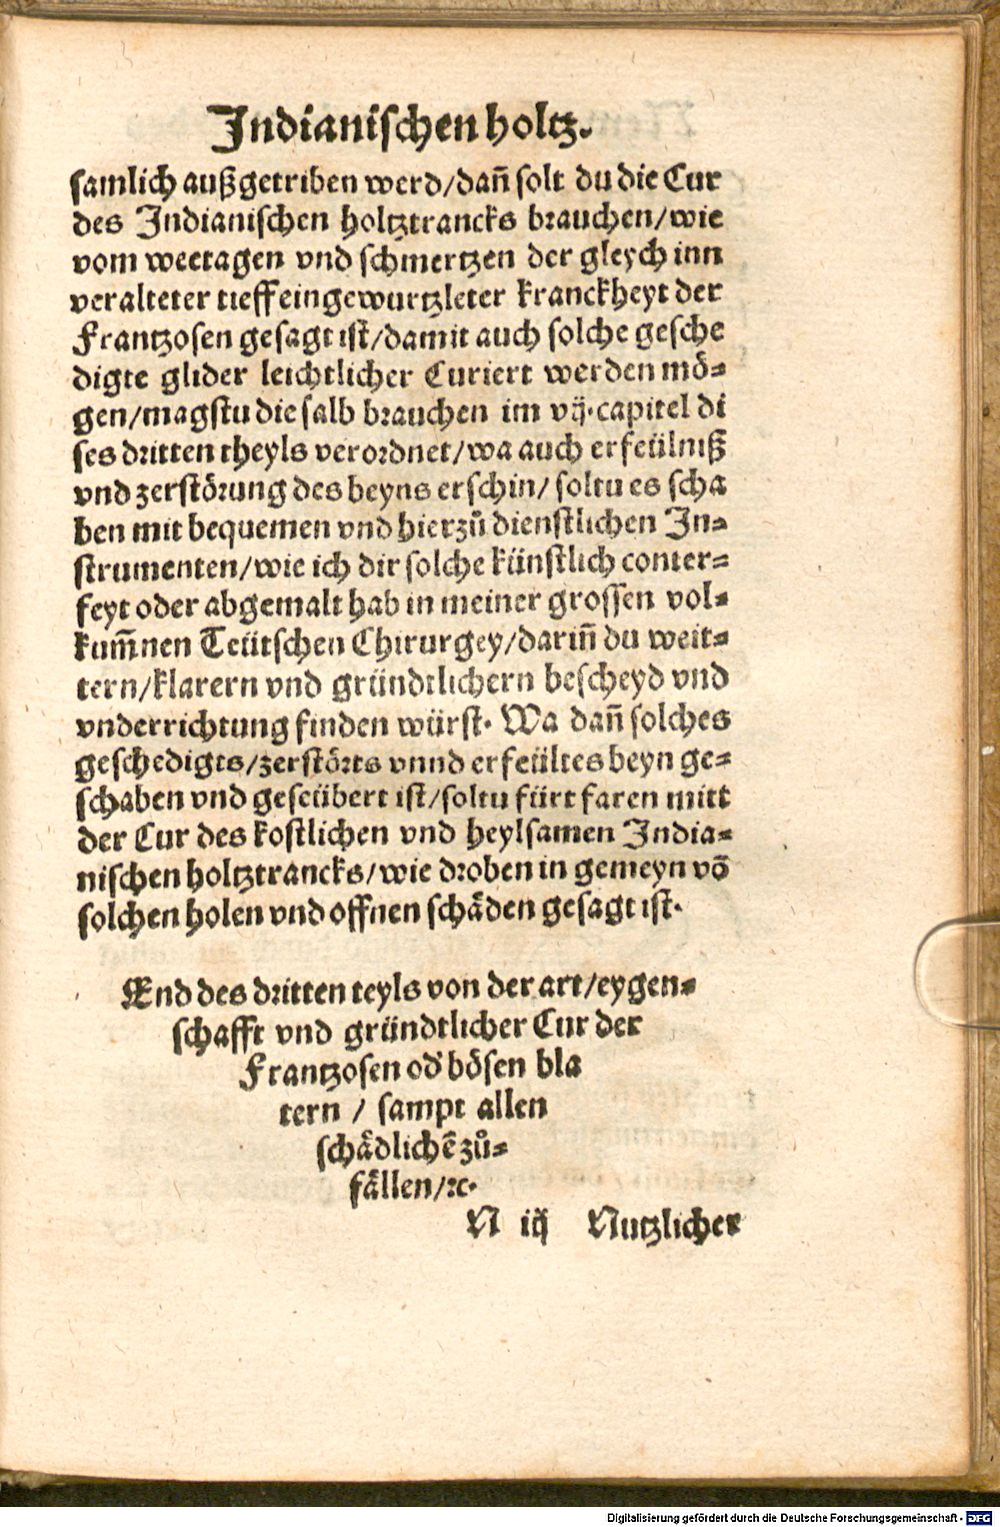 Indianischen holtz.
samlich außgetriben werd/dañ solt du die Cur
des Indianischen holtztrancks brauchen/wie
vom weetagen vnd schmertzen der gleych inn
veralteter tieff eingewurtzleter kranckheyt der
Frantzosen gesagt ist/damit auch solche gesche
digte glider leichtlicher Curiert werden mö⸗
gen/magstu die salb brauchen im vij. capitel di
ses dritten theyls verordnet/wa auch erfeülniß
vnd zerstörung des beyns erschin/ soltu es scha
ben mit bequemen vnd hierzů dienstlichen In⸗
strumenten/wie ich dir solche künstlich conter⸗
feyt oder abgemalt hab in meiner grossen vol⸗
kum̃nen Teütschen Chirurgey/dariñ du weit⸗
tern/klarern vnd gründtlichern bescheyd vnd
vnderrichtung finden würst. Wa dañ solches
geschedigts/zerstörts vnnd erfeültes beyn ge⸗
schaben vnd geseübert ist/soltu fürt faren mitt
der Cur des kostlichen vnd heylsamen India⸗
nischen holtztrancks/wie droben in gemeyn võ
solchen holen vnd offnen schäden gesagt ist.
End des dritten teyls von der art/eygen⸗
schafft vnd gründtlicher Cur der
Frantzosen od' bösen bla
tern / sampt allen
schädlichẽ zů⸗
fällen/ꝛc.
N iij Nutzlicher
Digitalisierung gefördert durch die Deutsche Forschungsgemeinschaft - DFG